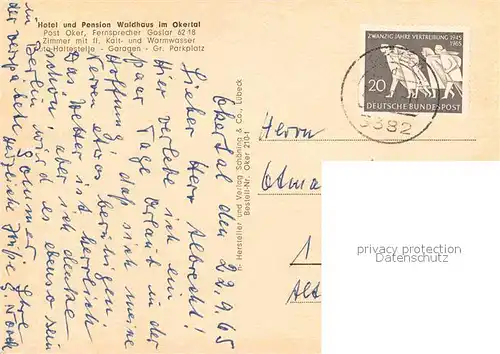 Hotel und Pension Waldhaus im Okertal
Post Oker, Fernsprecher Goslar 6218
Zimmer mit fl. Kalt- und Warmwasser
Auto-Haltestelle - Garagen - Gr. Parkplatz
Okertal den 22.9.65
Lieber Herr Albrecht!
Hier verlebe ich ein
paar Tage Urlaub in der
Hoffnung, daß sich meine
Nerven etwas beruhigen.
Das Wetter ist herrlich
schön, aber ich denke
in Berlin wird es ebenso sein
der verspätete Sommer
Herzliche Grüße Ihre
Hersteller und Verlag Schöning & Co., Lübeck
Bestell-Nr. Oker 210-1
ZWANZIG JAHRE VERTREIBUNG 1945
1965
20
DEUTSCHE BUNDESPOST
3382
Herrn
Otma
1
Alt
privacy protection
Datenschutz